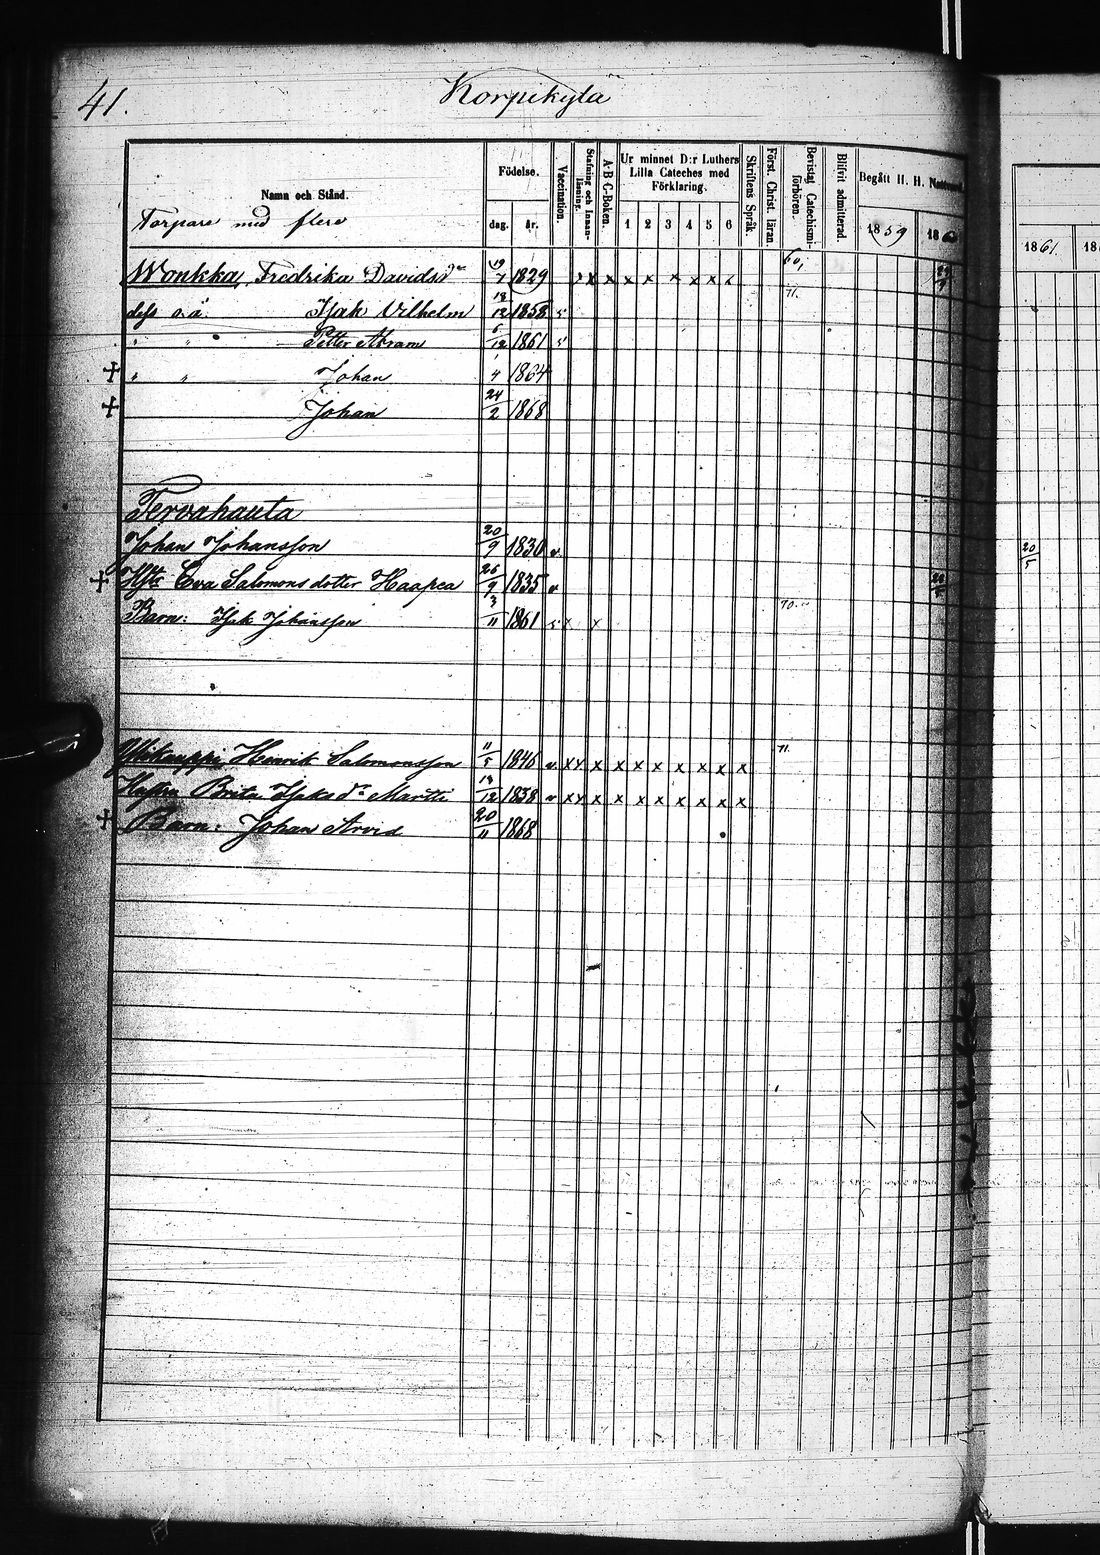 41.
Korpikylä
Namn och Stånd. Födelse. Vaccination. Stafning och Innanläsning. A-B-C-Boken. Ur minnet D:r Luthers Lilla Cateches med Förklaring. Skriftens Språk. Först. Christ. läran. Bevistat Catechismiförhören. Blifvit admitterad. Begått H. H.
dag. år. 1 2 3 4 5 6 1859 1861
Torpare med flere
Wonkka, Fredrika Davidsdr 19/7 1829 x x x x x x x x 60,
dess o.ä. Isak Vilhelm 18/12 1858 71.
" " Petter Abram 6/12 1861
+ " " Johan 1/4 1864
+ Johan 24/2 1868
Tervahauta
Johan Johansson 20/9 1830 v. 20/5
+ Hstr Eva Salomons dotter Haapea 26/9 1835 v
Barn: Isak Johansson 3/11 1861 x x 70.
Henrik Salomonsson 11/5 1846 v. x x x x x x x x x x 71.
Hustru Brita Isaksdr Martti 18/12 1838 v x x x x x x x x x x
+ Barn: Johan Arvid 20/11 1868